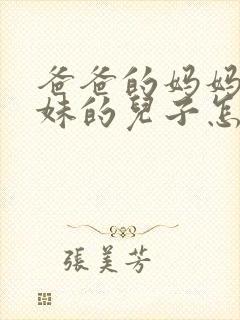 爸爸的妈妈
妹的兒子怎
張美芳